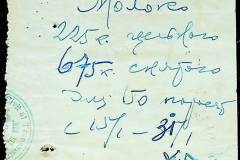 Молоко
225 г. цельного
675 г. снятого
для 50 порций
с 15/1 – 31/1